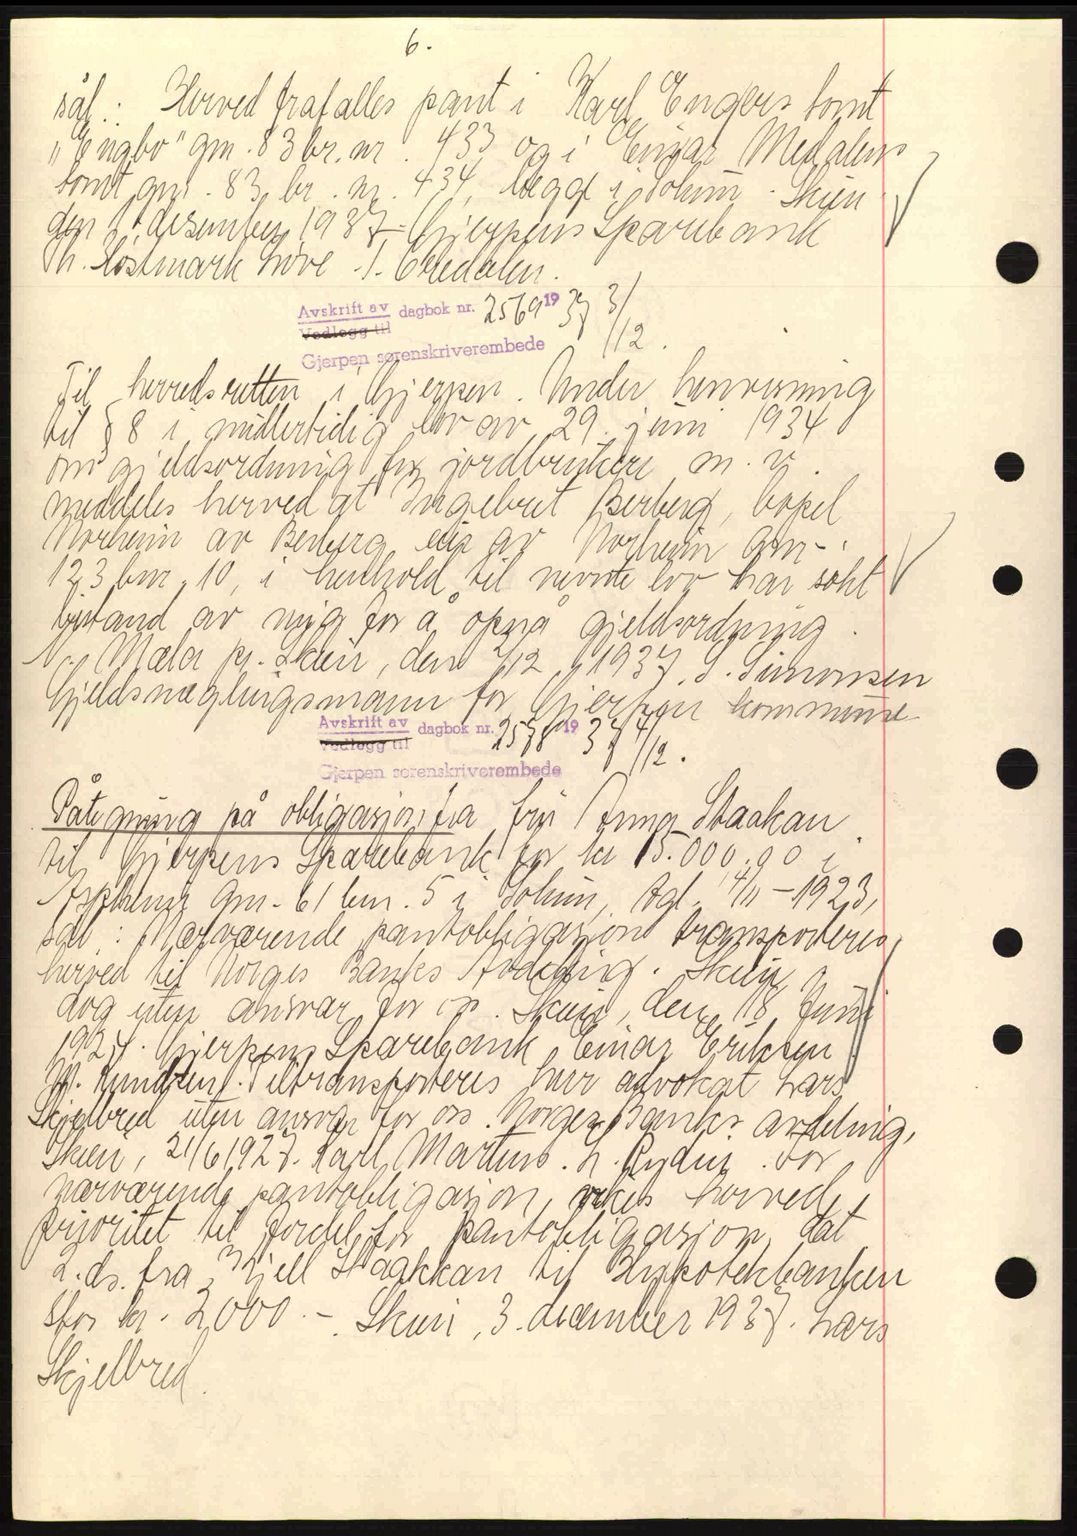 6.
sål.: Herved frafalles pant i Karl Engers tomt
"Engbo" gnr. 83 br. nr. 433 og i Einar Medalens
tomt gnr. 83 br. nr. 434, begge i Solum. Skien
den 1. desember 1937. Gjerpens Sparebank
Løve. T. Oredalen.
Avskrift av dagbok nr. 2569 1937 3/12.
Vedlegg til
Gjerpen sorenskriverembede
Til herredsretten i Gjerpen. Under henvisning
til § 8 i midlertidig lov av 29. juni 1934
om gjeldsordning for jordbrukere m. v.
meddeles herved at Ingebret Berberg, bopel
Norheim av Berberg, eier av Norheim gnr.
123 bnr. 10, i henhold til nevnte lov har søkt
bistand av mig for å opnå gjeldsordning.
Mæla pr. Skien, den 2/12 1937. S. Simonsen
Gjeldsmeglingsmann for Gjerpen kommune
Avskrift av dagbok nr. 2578 1937 4/12.
Vedlegg til
Gjerpen sorenskriverembede
Påtegning på obligasjon fra fru Anna Staakan
til Gjerpens Sparebank for kr 15.000.00 i
gnr. 61 bnr. 5 i Solum, tgl. 14/11-1923,
sål: Nærværende pantobligasjon transporteres
herved til Norges Banks Avdeling. Skien,
dog uten ansvar for os. Skien, den 18 Juni
1927. Gjerpens Sparebank Einar Eriksen
Knudsen. Tiltransporteres herr advokat Lars
Skjelbred uten ansvar for oss. Norges Banks avdeling,
Skien, 21/6 1927. Karl Martens. L. Ryden. For
nærværende pantobligasjon vikes herved
prioritet til fordel for pantobligasjon dat
2. ds. fra Kjell Staakkan til Hypotekbanken
stor kr. 2000.-. Skien, 3. december 1937. Lars
Skjelbred.